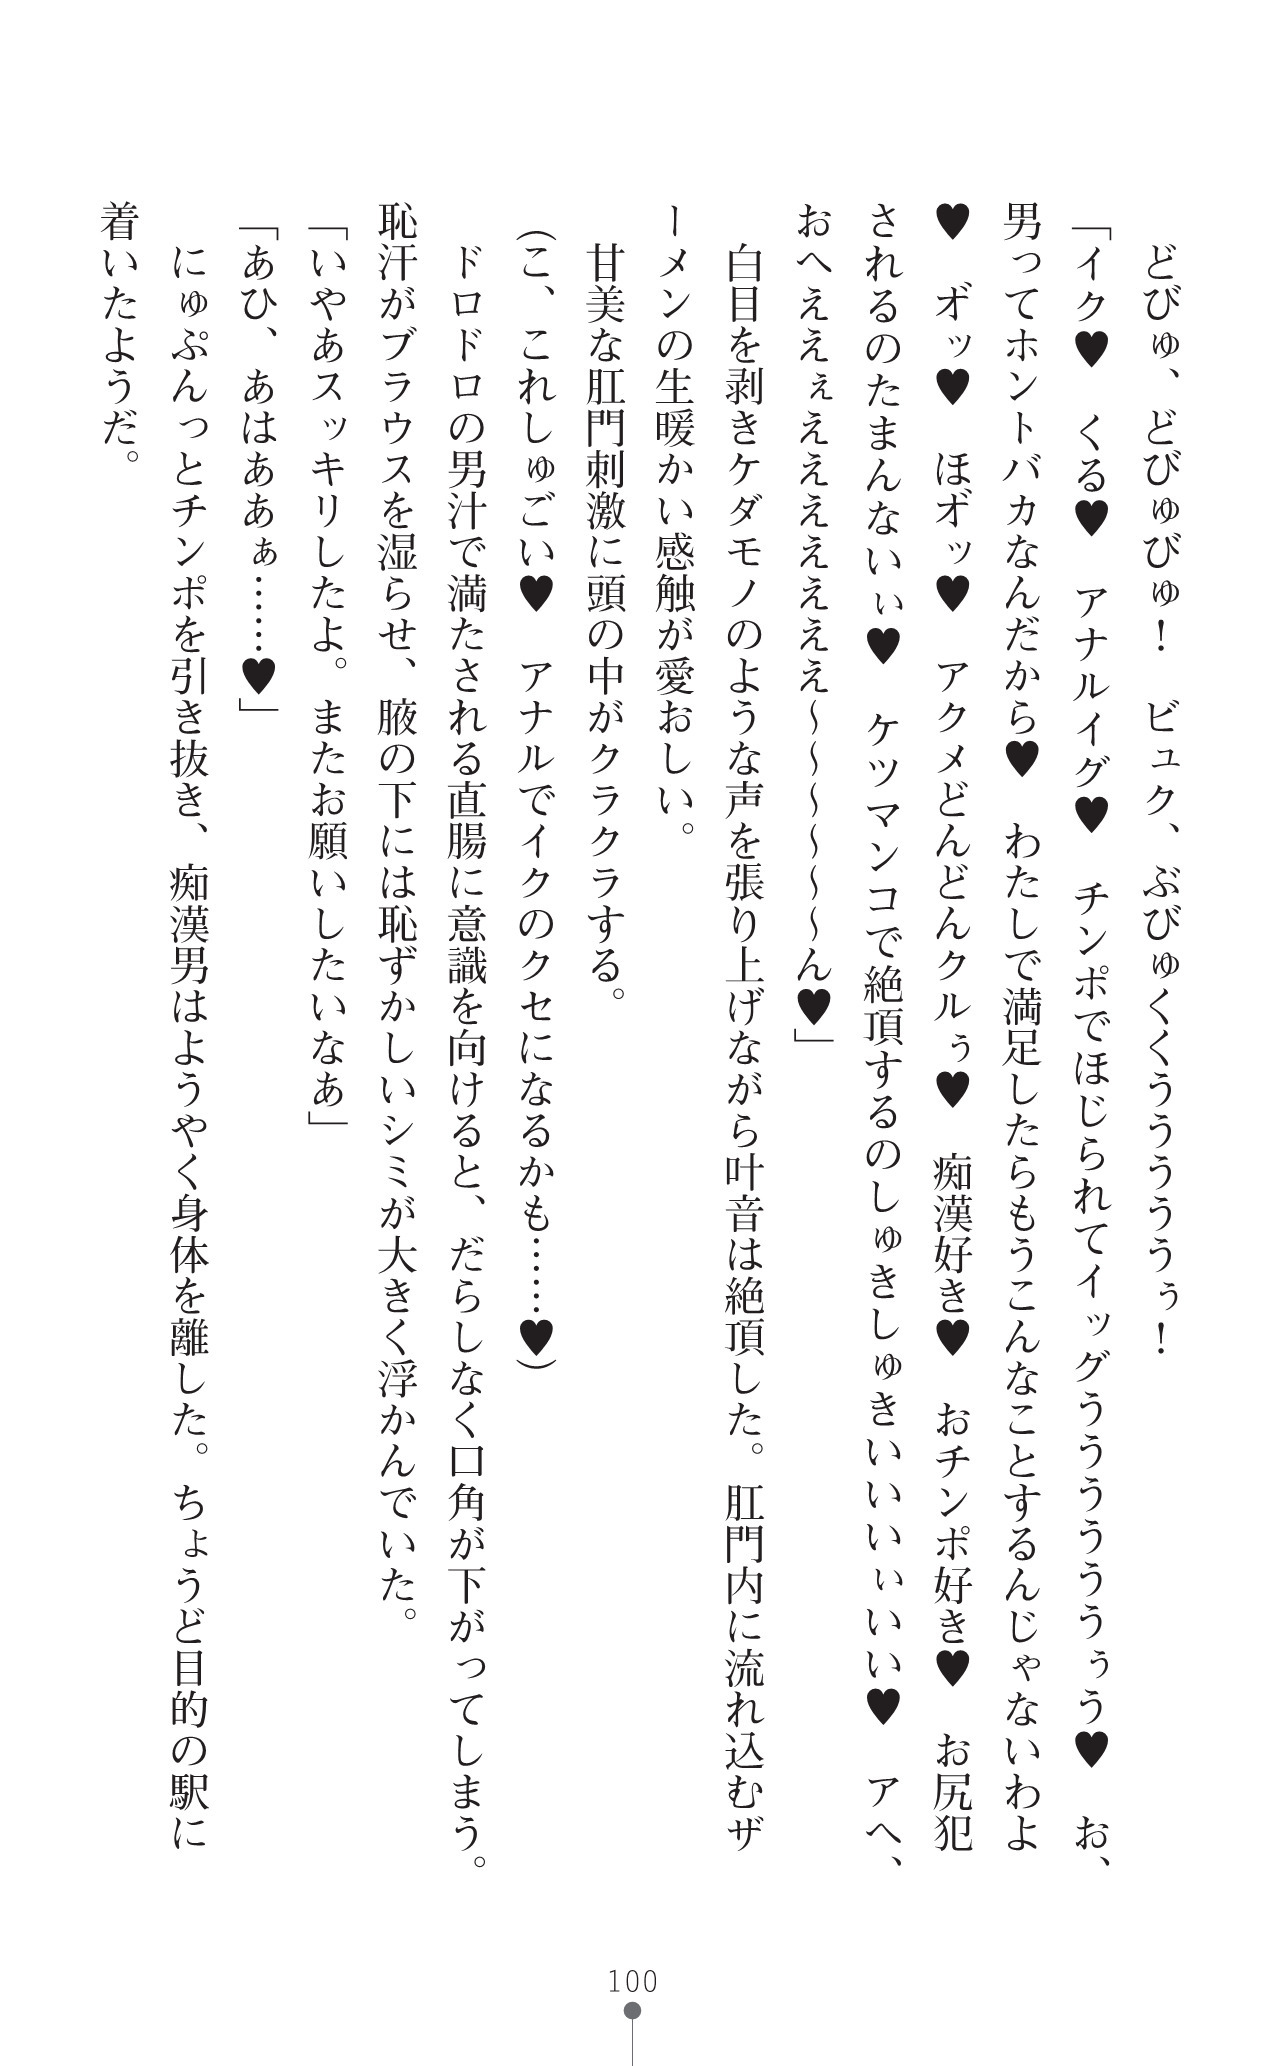 どびゅ、どびゅびゅ！　ビュク、ぶびゅくくうううううぅ！
「イク♥　くる♥　アナルイグ♥　チンポでほじられてイッグううううううぅう♥　お、
男ってホントバカなんだから♥　わたしで満足したらもうこんなことするんじゃないわよ
♥　ボッ♥　ほボッ♥　アクメどんどんクルぅ♥　痴漢好き♥　おチンポ好き♥　お尻犯
されるのたまんないぃ♥　ケツマンコで絶頂するのしゅきしゅきいいいぃいい♥　アへ、
おへええぇえええええええ～～～～～～ん♥」
白目を剥きケダモノのような声を張り上げながら叶音は絶頂した。肛門内に流れ込むザ
ーメンの生暖かい感触が愛おしい。
甘美な肛門刺激に頭の中がクラクラする。
（こ、これしゅごい♥　アナルでイクのクセになるかも……♥）
ドロドロの男汁で満たされる直腸に意識を向けると、だらしなく口角が下がってしまう。
恥汗がブラウスを湿らせ、腋の下には恥ずかしいシミが大きく浮かんでいた。
「いやあスッキリしたよ。またお願いしたいなあ」
「あひ、あはああぁ……♥」
にゅぷんっとチンポを引き抜き、痴漢男はようやく身体を離した。ちょうど目的の駅に
着いたようだ。
100